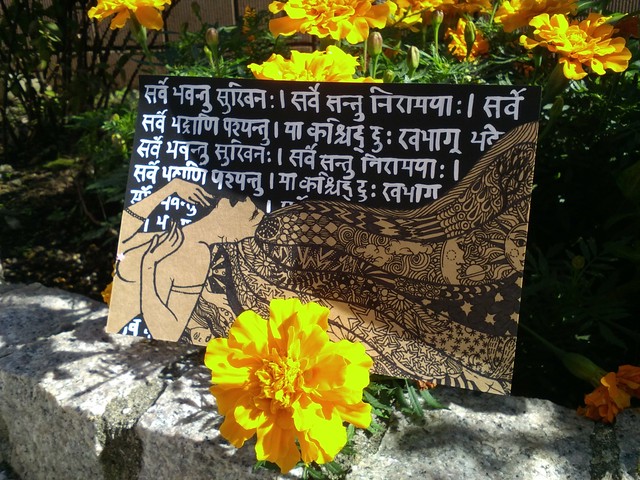 सर्वे भवन्तु सुखिन: । सर्वे सन्तु निरामया: । सर्वे
सर्वे भद्राणि पश्यन्तु । मा कश्चिद् दु: खभाग्
सर्वे भवन्तु सुखिन: । सर्वे सन्तु निरामया: ।
सर्वे भद्राणि पश्यन्तु । मा कश्चिद् दु: खभाग